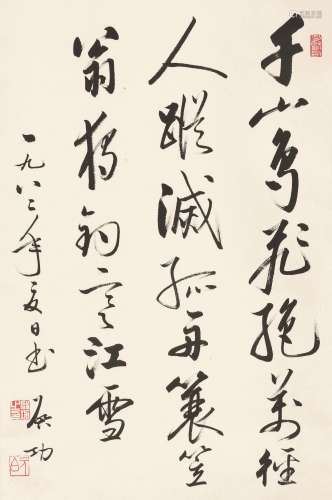 千山鸟飛絶萬徑
人蹤滅孤舟蓑笠
翁獨釣寒江雪
一九八二年夏日书 启功